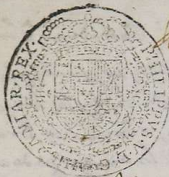 PHILIPPVS V D G
HISPANIAR REX